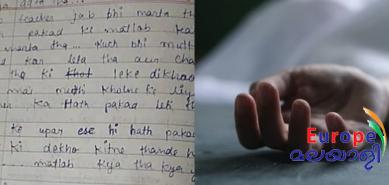 teacher jab bhi marta th
pakad ke matlab ka
marta tha... kuch bhi mult
kar leta tha aur cha
tha ki khot leke dikhao
muthi kholne ke liy
ka Hath pakad leti
ke upar ese hi hath pakad
ki dekho kitne thande h
matlab kya tha kya
Europe
മലയാളി